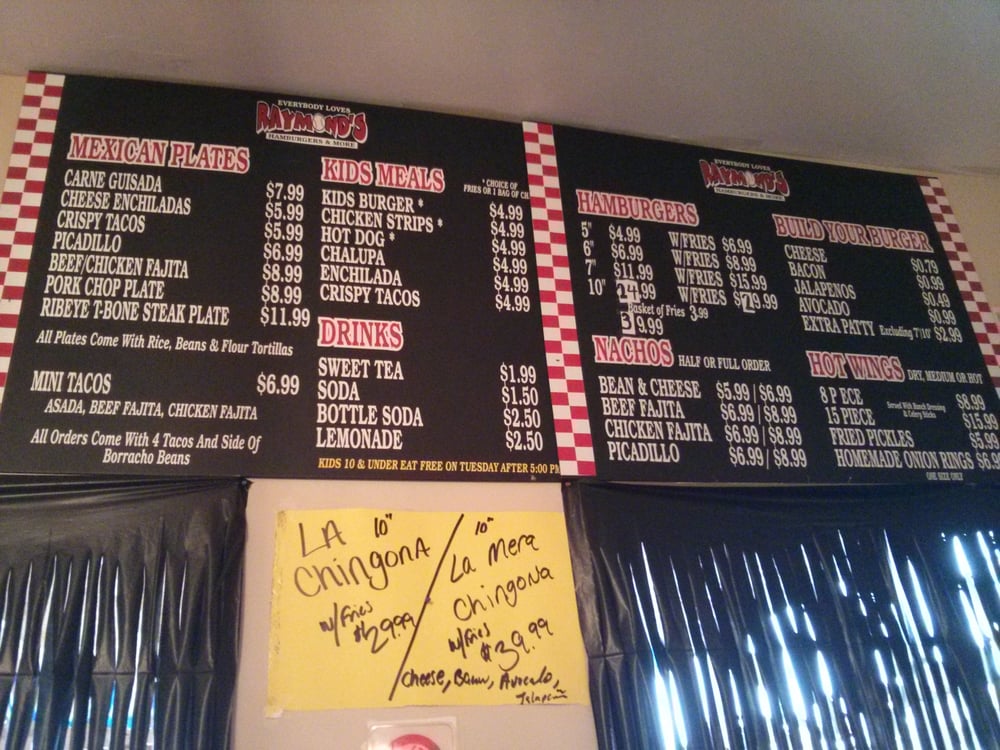 EVERYBODY LOVES
RAYMOND'S
HAMBURGERS & MORE
MEXICAN PLATES
CARNE GUISADA $7.99
CHEESE ENCHILADAS $5.99
CRISPY TACOS $5.99
PICADILLO $6.99
BEEF/CHICKEN FAJITA $8.99
PORK CHOP PLATE $8.99
RIBEYE T-BONE STEAK PLATE $11.99
All Plates Come With Rice, Beans & Flour Tortillas
MINI TACOS $6.99
ASADA, BEEF FAJITA, CHICKEN FAJITA
All Orders Come With 4 Tacos And Side Of
Borracho Beans
KIDS MEALS
* CHOICE OF
FRIES OR 1 BAG OF
KIDS BURGER * $4.99
CHICKEN STRIPS * $4.99
HOT DOG * $4.99
CHALUPA $4.99
ENCHILADA $4.99
CRISPY TACOS $4.99
DRINKS
SWEET TEA $1.99
SODA $1.50
BOTTLE SODA $2.50
LEMONADE $2.50
KIDS 10 & UNDER EAT FREE ON TUESDAY AFTER 5:00
EVERYBODY LOVES
RAYMOND'S
HAMBURGERS & MORE
HAMBURGERS
5" $4.99 W/FRIES $6.99
6" $6.99 W/FRIES $8.99
7" $11.99 W/FRIES $15.99
10" 24.99 W/FRIES $29.99
Basket of Fries 3.99
39.99
NACHOS HALF OR FULL ORDER
BEAN & CHEESE $5.99/$6.99
BEEF FAJITA $6.99/$8.99
CHICKEN FAJITA $6.99/$8.99
PICADILLO $6.99/$8.99
BUILD YOUR BURGER
CHEESE $0.79
BACON $0.99
JALAPENOS $0.49
AVOCADO $0.99
EXTRA PATTY Excluding 7"/10" $2.99
HOT WINGS DRY, MEDIUM OR HOT
8 P ECE $8.99
15 PIECE $15.99
Served With Ranch Dressing
& Celery Sticks
FRIED PICKLES $5.99
HOMEMADE ONION RINGS
ONE SIZE ONLY
LA 10"
ChingonA
w/Fries
$29.99
10"
La Mera
Chingona
w/Fries
$39.99
Cheese, Bacon, Avocado,